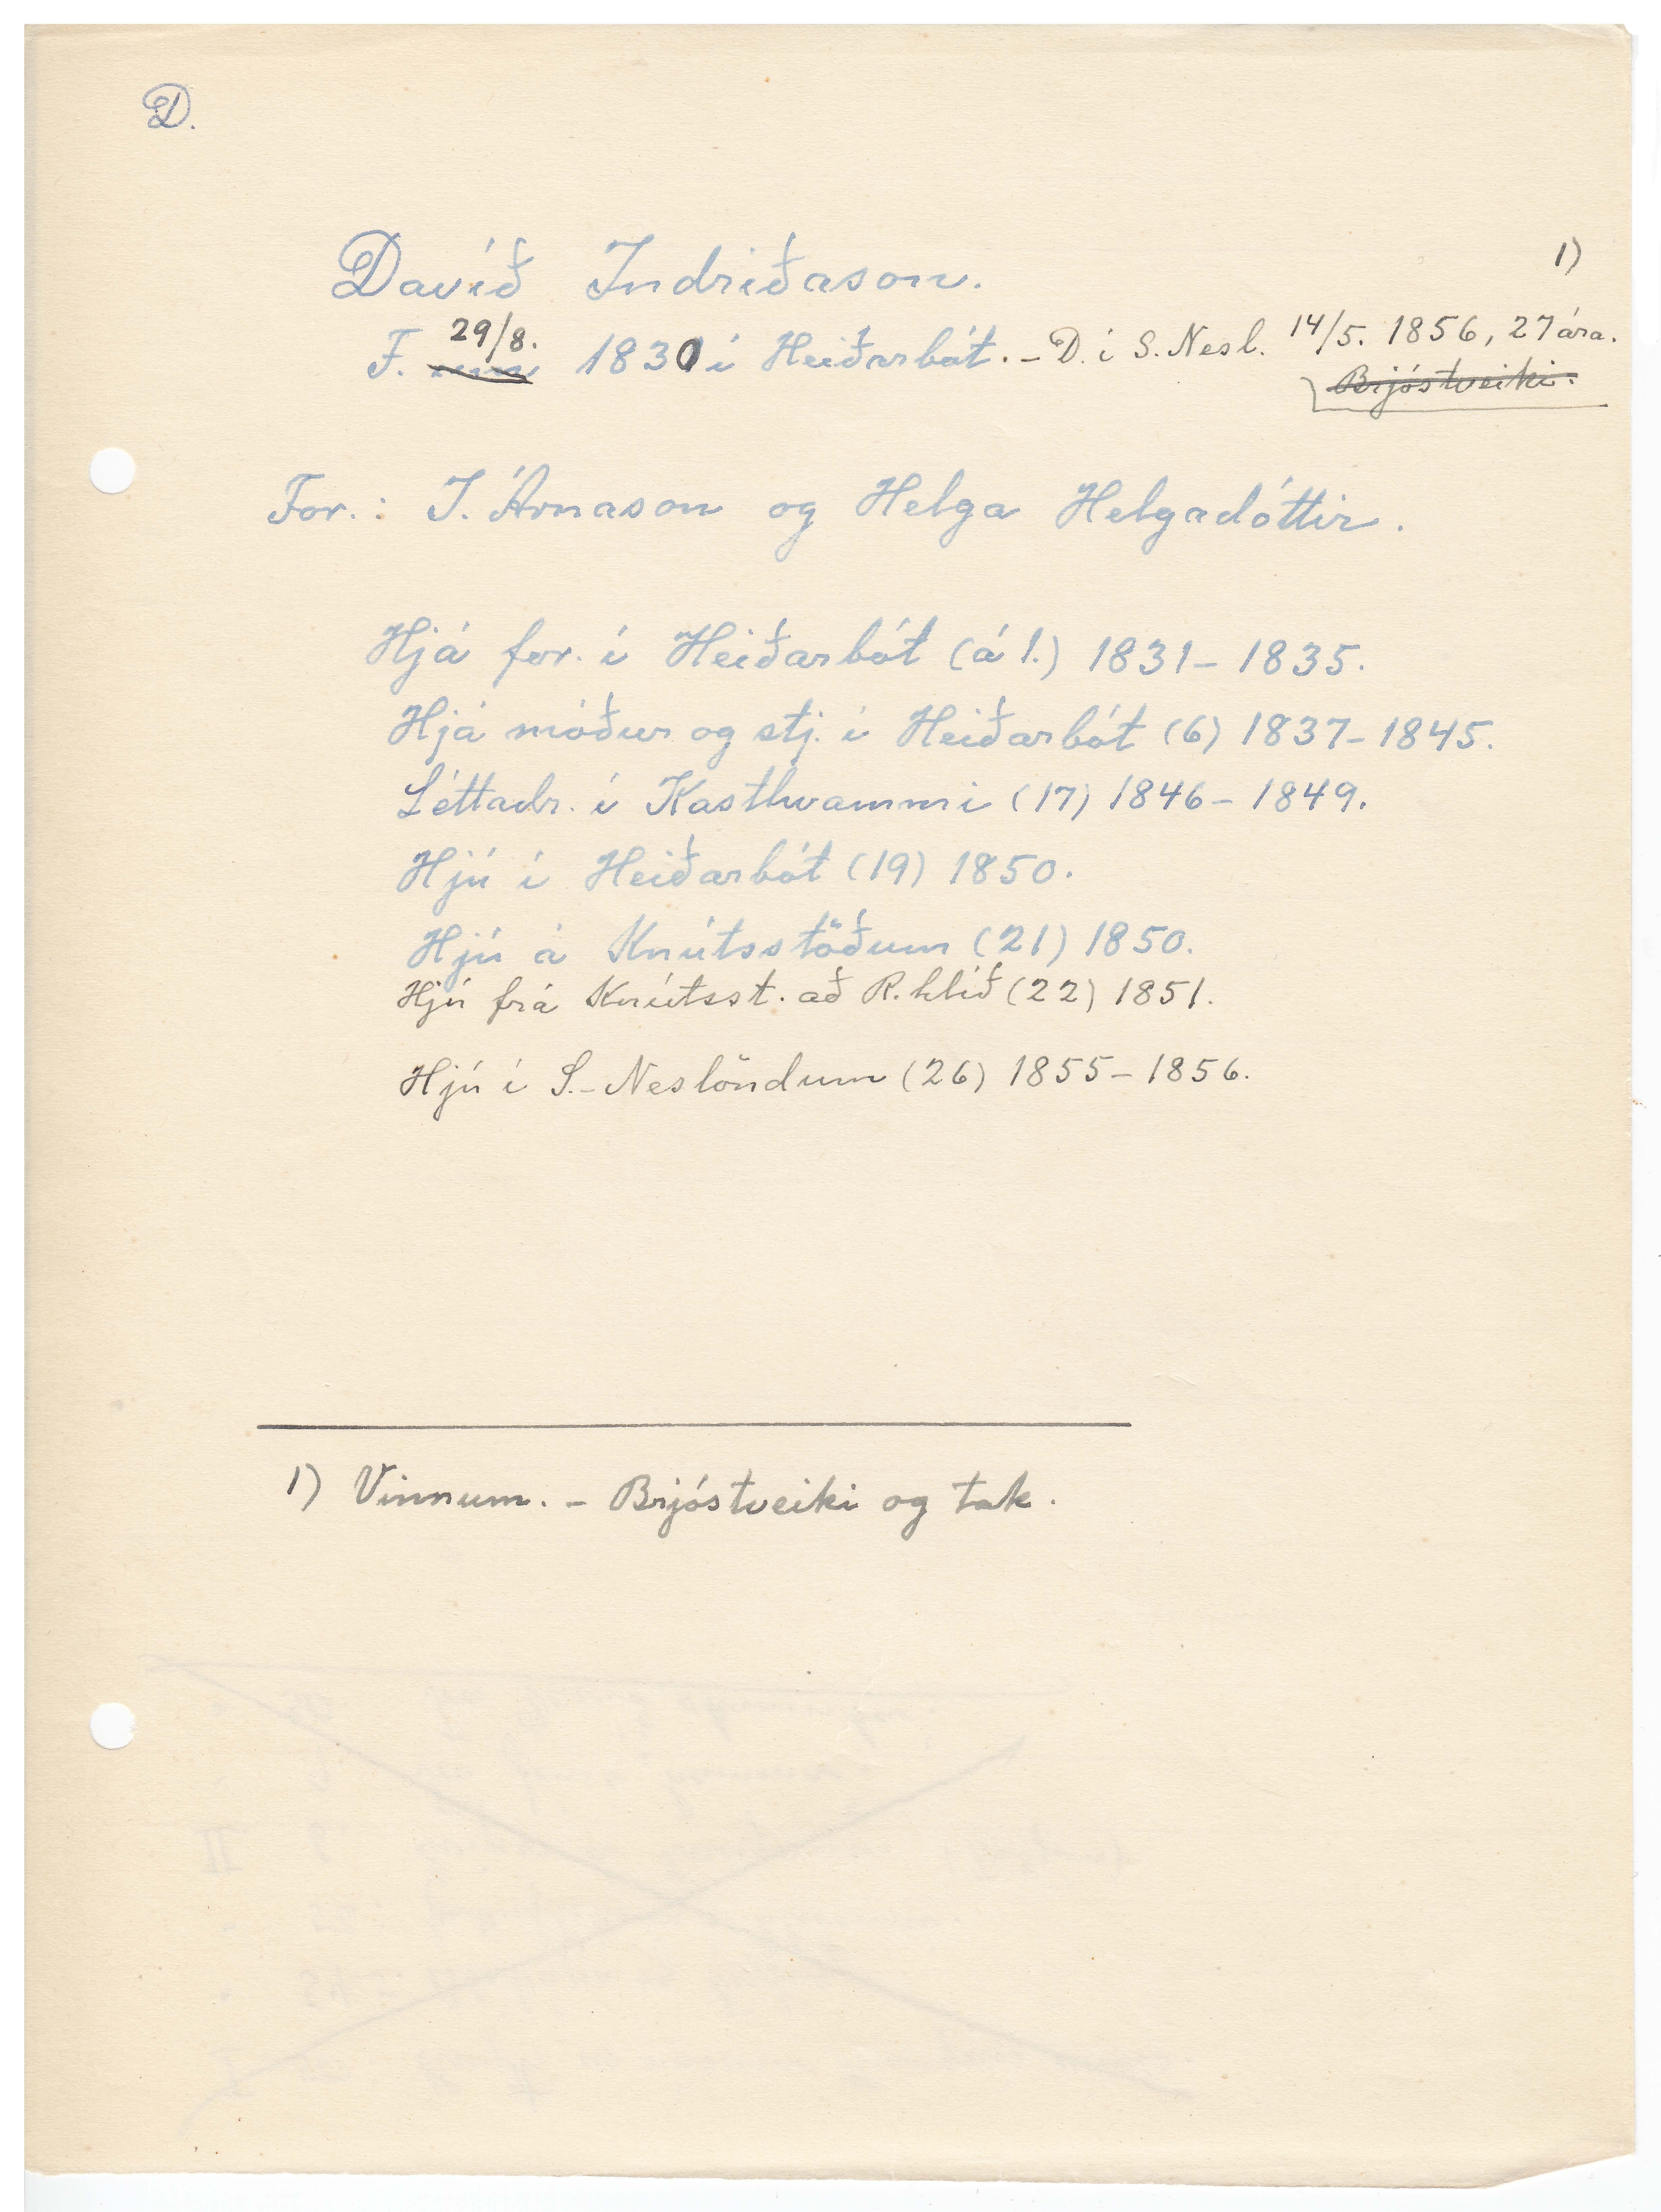 D.
Davíð Indriðason.
1)
F. 29/8. 1830 í Heiðarbót. – D. í S. Nesl. 14/5. 1856, 27 ára.
Brjóstveiki.
For.: I. Árnason og Helga Helgadóttir.
Hjá for. í Heiðarbót (á 1.) 1831–1835.
Hjá móður og stj. í Heiðarbót (6) 1837–1845.
Léttadr. í Kasthvammi (17) 1846–1849.
Hjú í Heiðarbót (19) 1850.
Hjú á Knútsstöðum (21) 1850.
Hjú frá Knútsst. að R.hlíð (22) 1851.
Hjú í S.-Neslöndum (26) 1855–1856.
1) Vinnum. – Brjóstveiki og tak.